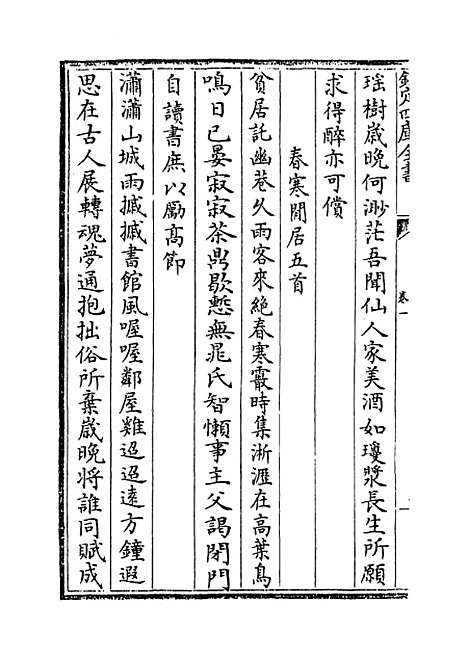 欽定四庫全書
卷一
瑶樹歳晚何渺茫吾聞仙人家美酒如瓊漿長生所願
求得醉亦可償
春寒閒居五首
貧居託幽巷久雨客來絶春寒霰時集淅瀝在高葉鳥
鳴日已晏寂寂茶鼎歇慙無鼂氏智懶事主父謁閉門
自讀書庶以勵髙節
瀟瀟山城雨摵摵書館風喔喔鄰屋雞迢迢逺方鐘遐
思在古人展轉魂夢通抱拙俗所棄歳晚將誰同賦成